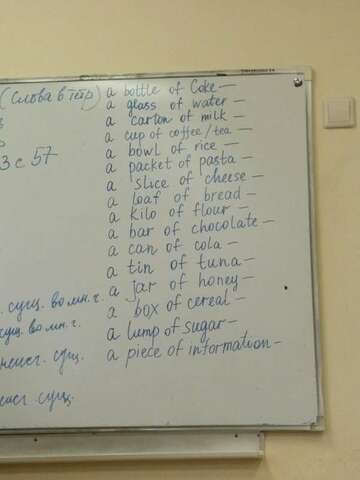 (Слова в тетр)
a bottle of Coke —
a glass of water —
a carton of milk —
a cup of coffee/tea —
3 с 57
a bowl of rice —
a packet of pasta —
a slice of cheese —
a loaf of bread —
a kilo of flour —
a bar of chocolate —
a can of cola —
a tin of tuna —
сущ. во мн. ч.
a jar of honey —
сущ. во мн. г.
a box of cereal —
a lump of sugar —
неисч. сущ.
a piece of information —
сущ.